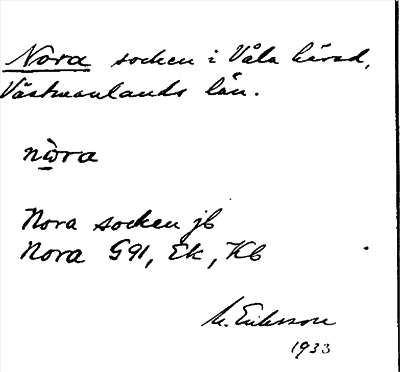 Nora socken i Våla härad,
Västmanlands län.
nẁ̱ra
Nora socken jb
Nora G91, Ek, Kb
M. Eriksson
1933